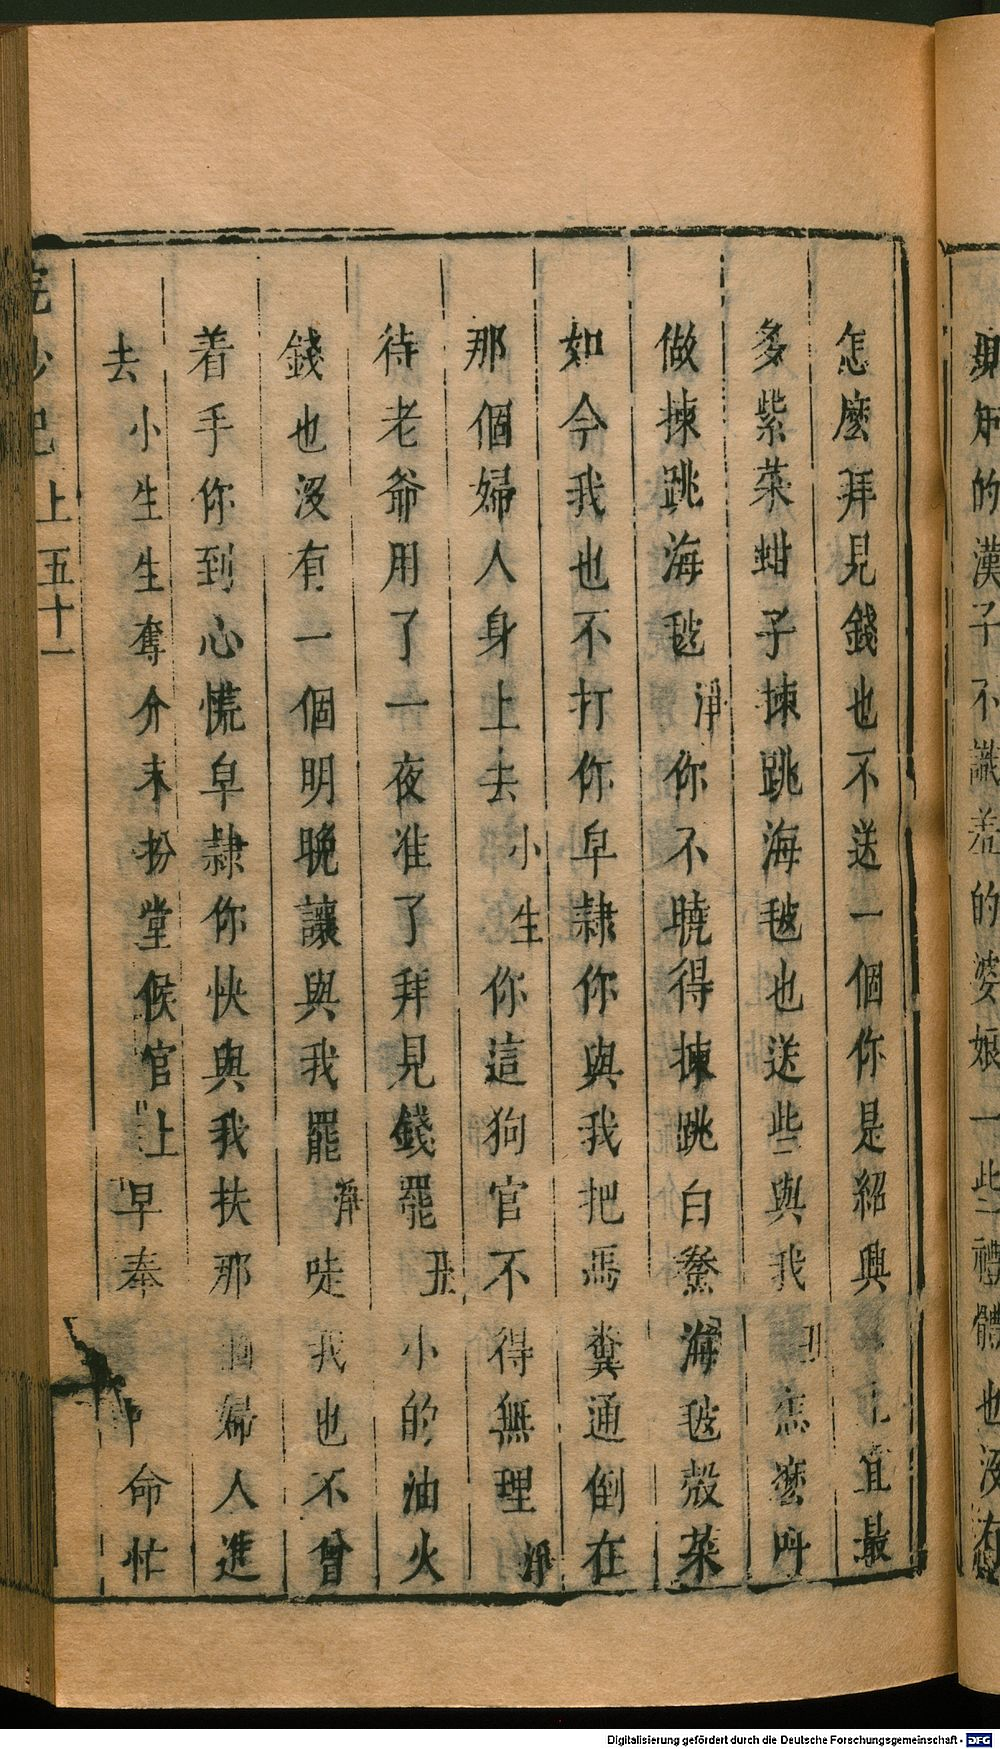 的漢子不識羞的婆娘一些禮體也沒
怎麼拜見錢也不送一個你是紹興宜最
多紫菜蚶子揀跳海也送些與我丑怎麼呌
做揀跳海淨你不曉得揀跳白鯗海殻菜
如今我也不打你皁隸你與我把馬糞通倒在
那個婦人身上去小生你這狗官不得無理淨
待老爺用了一夜准了拜見錢罷丑小的油火
錢也沒有一個明晚讓與我罷淨唗我也不曾
着手你到心慌皁隸你快與我扶那個婦人進
去小生生奪介末扮堂候官上早奉命忙
上五十一
Digitalisierung gefördert durch die Deutsche Forschungsgemeinschaft - DFG